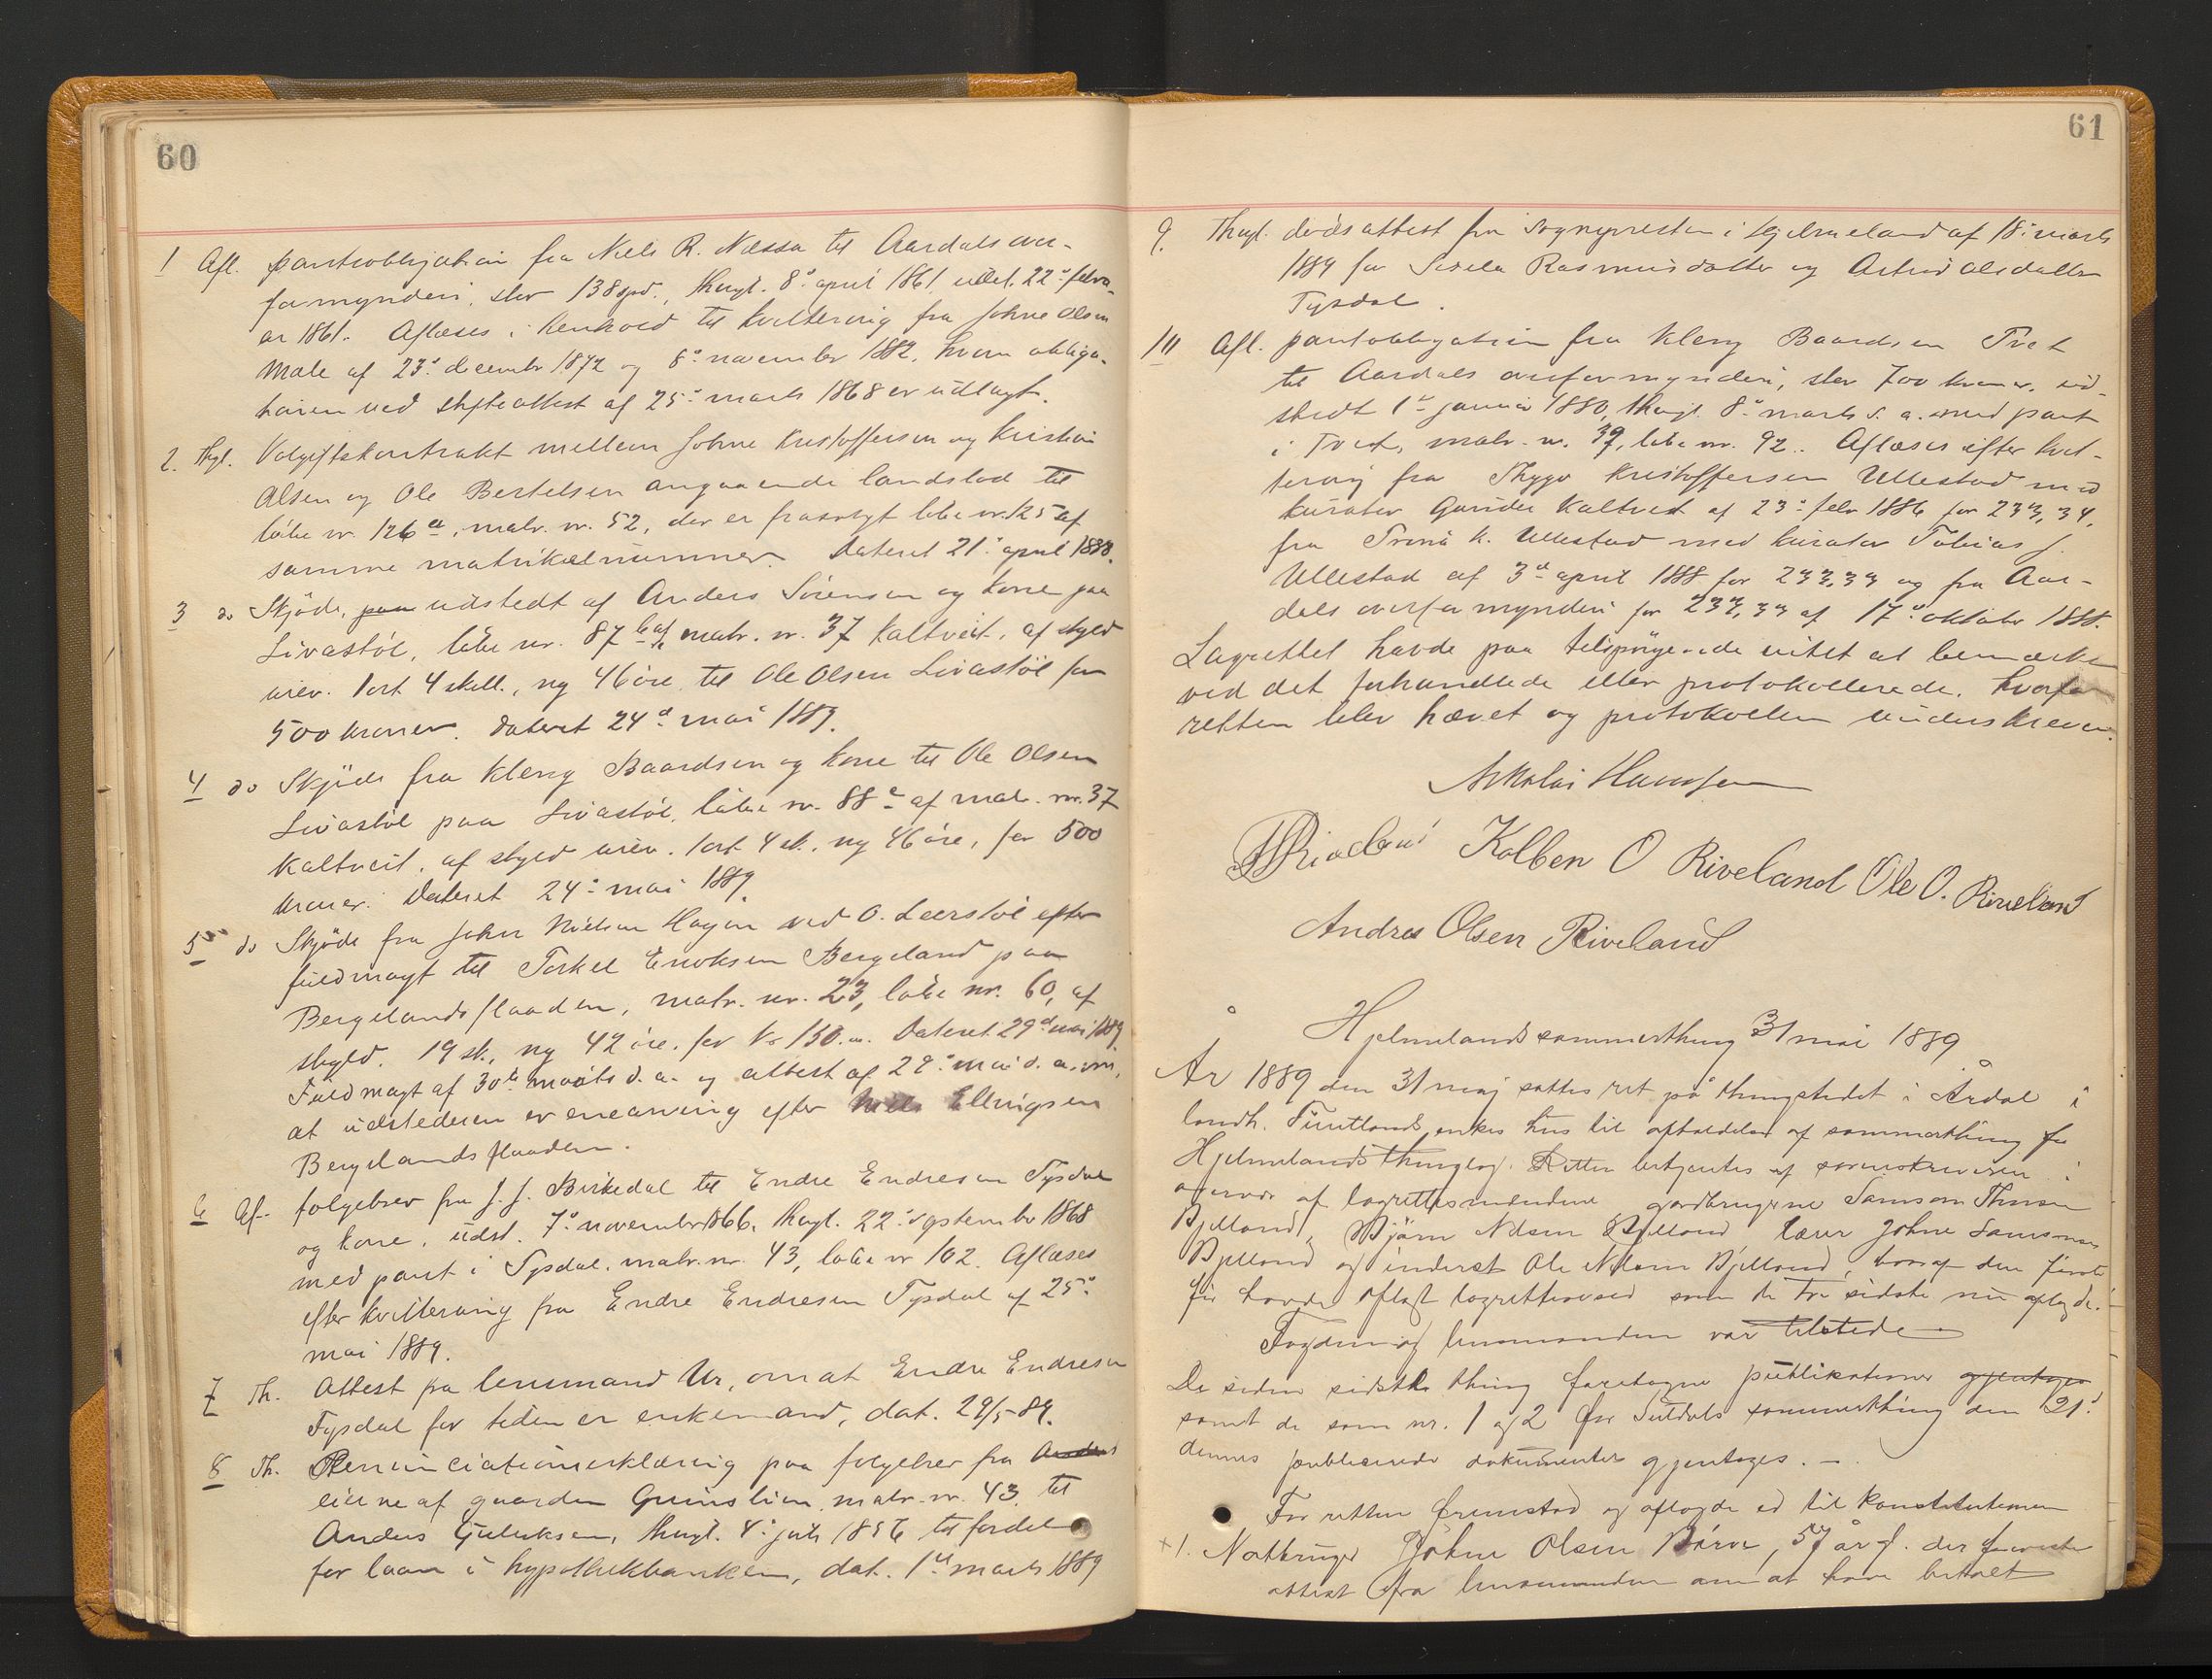 60
1 Afl. pantobligation fra Niels R. Nessa til Aardals over-
formynderi, stor 138 spd., thingl. 8de april 1861, udst. 22de febru-
ar 1861. Aflæses i henhold til kvittering fra Johne Olsen
Mæle af 23de december 1872 og 8de november 1882, hvem obliga-
tionen ved skifteattest af 25de marts 1868 er udlagt.
2. Thgl. Volgiftskontrakt mellem Johne Kristoffersen og Kristian
Olsen og Ole Bertelsen angaaende landslod til
løbe nr. 126 a, matr. nr. 52, der er frasolgt løbe nr. 125 af
samme matrikelnummer. Dateret 21de april 1888.
3 do Skjøde, paa udstedt af Anders Sørensen og kone paa
Livastøl, løbe nr. 87 b af matr. nr. 37 Kaltveit, af skyld
urev. 1 ort 4 skill., ny 46 øre til Ole Olsen Livastøl for
500 kroner. Dateret 24de mai 1889.
4 do Skjøde fra Kleng Baardsen og kone til Ole Olsen
Livastøl paa Livastøl, løbe nr. 88 c af matr. nr. 37
Kaltveit, af skyld urev. 1 ort 4 sk., ny 46 øre, for 500
kroner. Dateret 24de mai 1889.
5 do Skjøde fra John Nielsen Hagen ved O. Leerstøl efter
fuldmagt til Torkel Enoksen Bergeland paa
Bergelandsflaaden, matr. nr. 23, løbe nr. 60, af
skyld. 19 sk., ny 42 øre, for kr 150.00. Dateret 29de mai 1889.
Fuldmagt af 30te marts d. a. og attest af 29de mai d. a. om,
at udstederen er enearving efter Niels Ellingsen
Bergelandsflaaden.
6 Af. følgebrev fra J. J. Birkedal til Endre Endresen Tysdal
og kone, udst. 7de november 1866, thngl. 22de september 1868
med pant i Tysdal, matr. nr. 43, løbe nr 102. Aflæses
efter kvittering fra Endre Endresen Tysdal af 25de
mai 1889.
7 Th. Attest fra lensmand Ur, om at Endre Endresen
Tysdal for tiden er enkemand, dat. 29/5-89.
8 Th. Renunciationserklæring paa følgebrev fra Anders
eierne af gaarden Grimslien, matr. nr. 43, til
Anders Gjeluksen, thngl. 4de juli 1856 til fordel
for laan i hypothekbanken, dat. 1ste marts 1889
61
9. Thngl. dødsattest fra Sognepresten i Hjelmeland af 18de marts
1889 for Sisela Rasmusdatter og Astrid Olsdatter
Tysdal.
10 Afl. pantobligation fra Kleng Baardsen Tvet
til Aardals overformynderi, stor 700 kroner, ud-
stedt 1ste januar 1880, thngl. 8de marts s. a. med pant
i Tvet, matr. nr. 39, løbe nr. 92. Aflæses efter kvit-
tering fra Thygo Kristoffersen Ullestad med
kurator Gunder Kaltvedt af 23de febr 1886 for 233,34,
fra Trina K. Ullestad med kurator Tobias J.
Ullestad af 3de april 1888 for 233,33 og fra Aar-
dals overformynderi for 233,33 af 17de oktober 1888.
Lagrettet havde paa tilspørgende intet at bemærke
ved det forhandlede eller protokollerede, hvorfor
retten blev hævet og protokollen underskreven.
Nikolai Hanssen
Kolben O Riveland Ole O. Riveland
Andres Olsen Riveland
Hjelmelands sommerthing 31 mai 1889
År 1889 den 31 maj sattes ret på thingstedet i Årdal i
landh. enkes hus til afholdelse af sommerthing for
Hjelmelands thinglag. Retten betjentes af sorenskriveren i
overvær af lagrettesmændene gardbrugerne Samson Thnsen
Bjelland, Bjørn Nilsen Bjelland, lærer Johne Samsonsen
Bjelland og inderst Ole Nilsen Bjelland, hvoraf den første
før havde aflagt lagretteseed som de tre sidste nu aflagde.
Fogden og lensmanden var tilstede
De siden sidste thing foretagne publikationer gjentages
samt de som nr. 1 og 2 for Suldals sommerthing den 21de
dennes publicerede dokumenter gjentages. –
For retten fremstod og aflagde ed til konstitutionen
+1. Notbruger Johne Olsen Børve, 57 år g. der foreviste
attest fra lensmanden om at have betalt